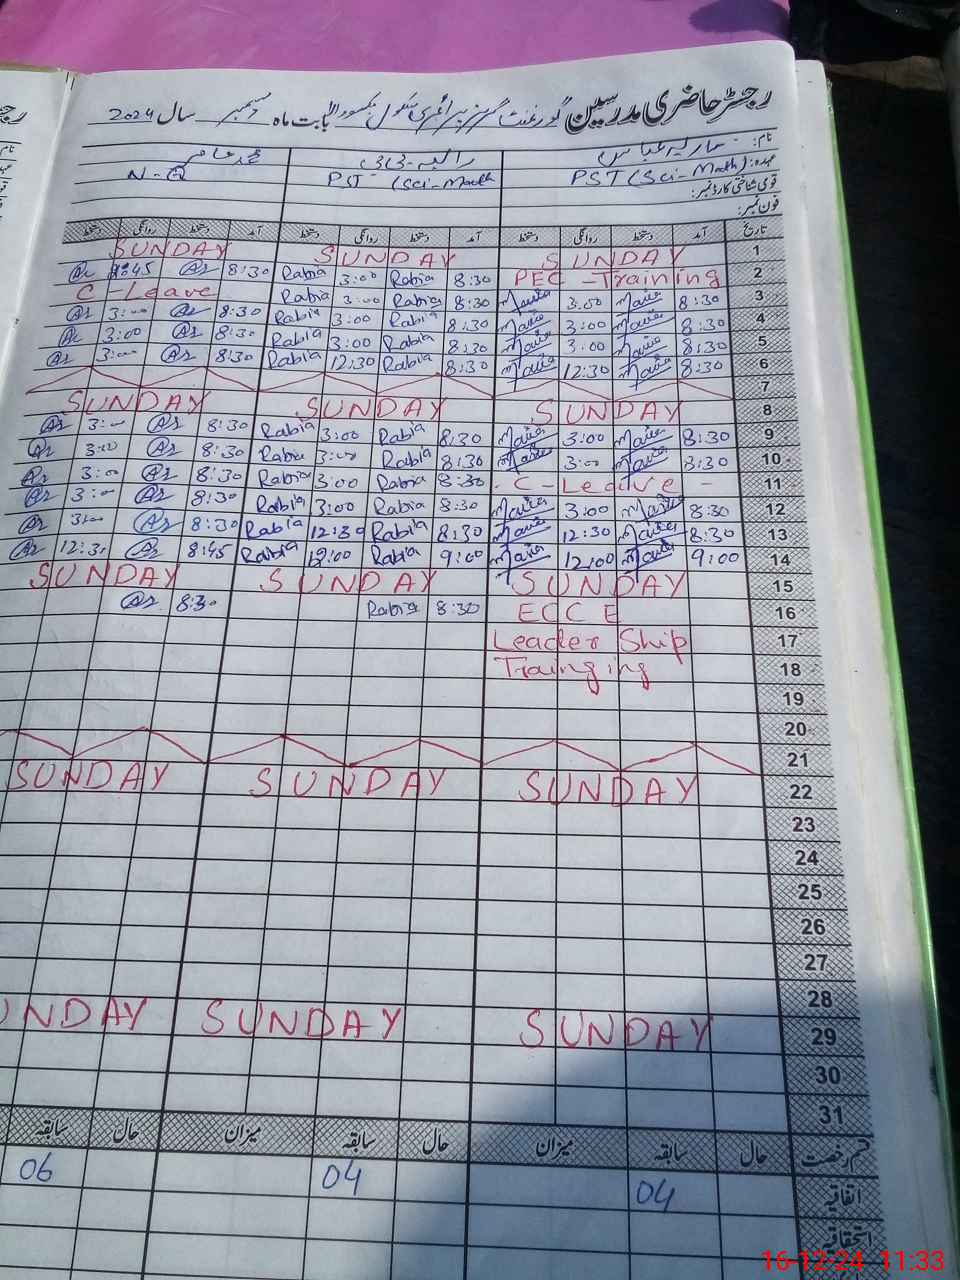 رجسٹر حاضری مدرسین گورنمنٹ گرلز پرائمری سکول بابت ماہ دسمبر سال 2024
نام: ماریہ عباس رابعہ محمد عامر
عہدہ: PST (Sci-Math) PST (Sci-Math N-Q
قومی شناختی کارڈ نمبر:
فون نمبر:
تاریخ آمد دستخط روانگی دستخط آمد دستخط روانگی دستخط آمد دستخط روانگی دستخط
1 SUNDAY SUNDAY SUNDAY
2 PEC-Training 8:30 Rabia 3:00 Rabia 8:30 Ar 1:45 Ar
3 8:30 Maria 3:00 Maria 8:30 Rabia 3:00 Rabia C-Leave
4 8:30 Maria 3:00 Maria 8:30 Rabia 3:00 Rabia 8:30 Ar 3:00 Ar
5 8:30 Maria 3:00 Maria 8:30 Rabia 3:00 Rabia 8:30 Ar 3:00 Ar
6 8:30 Maria 12:30 Maria 8:30 Rabia 12:30 Rabia 8:30 Ar 3:00 Ar
7
8 SUNDAY SUNDAY SUNDAY
9 8:30 Maria 3:00 Maria 8:30 Rabia 3:00 Rabia 8:30 Ar 3:00 Ar
10 8:30 Maria 3:00 Maria 8:30 Rabia 3:00 Rabia 8:30 Ar 3:00 Ar
11 - C-Leave - 8:30 Rabia 3:00 Rabia 8:30 Ar 3:00 Ar
12 8:30 Maria 3:00 Maria 8:30 Rabia 3:00 Rabia 8:30 Ar 3:00 Ar
13 8:30 Maria 12:30 Maria 8:30 Rabia 12:30 Rabia 8:30 Ar 3:00 Ar
14 9:00 Maria 12:00 Maria 9:00 Rabia 12:00 Rabia 8:45 Ar 12:30 Ar
15 SUNDAY SUNDAY SUNDAY
16 ECCE 8:30 Rabia 8:30 Ar
17 Leader Ship
18 Trainging
19
20
21
22 SUNDAY SUNDAY SUNDAY
23
24
25
26
27
28
29 SUNDAY SUNDAY UNDAY
30
31
قسم رخصت حال سابقہ میزان حال سابقہ میزان حال سابقہ
اتفاقیہ 04 04 06
استحقاقیہ
16-12-24 11:33